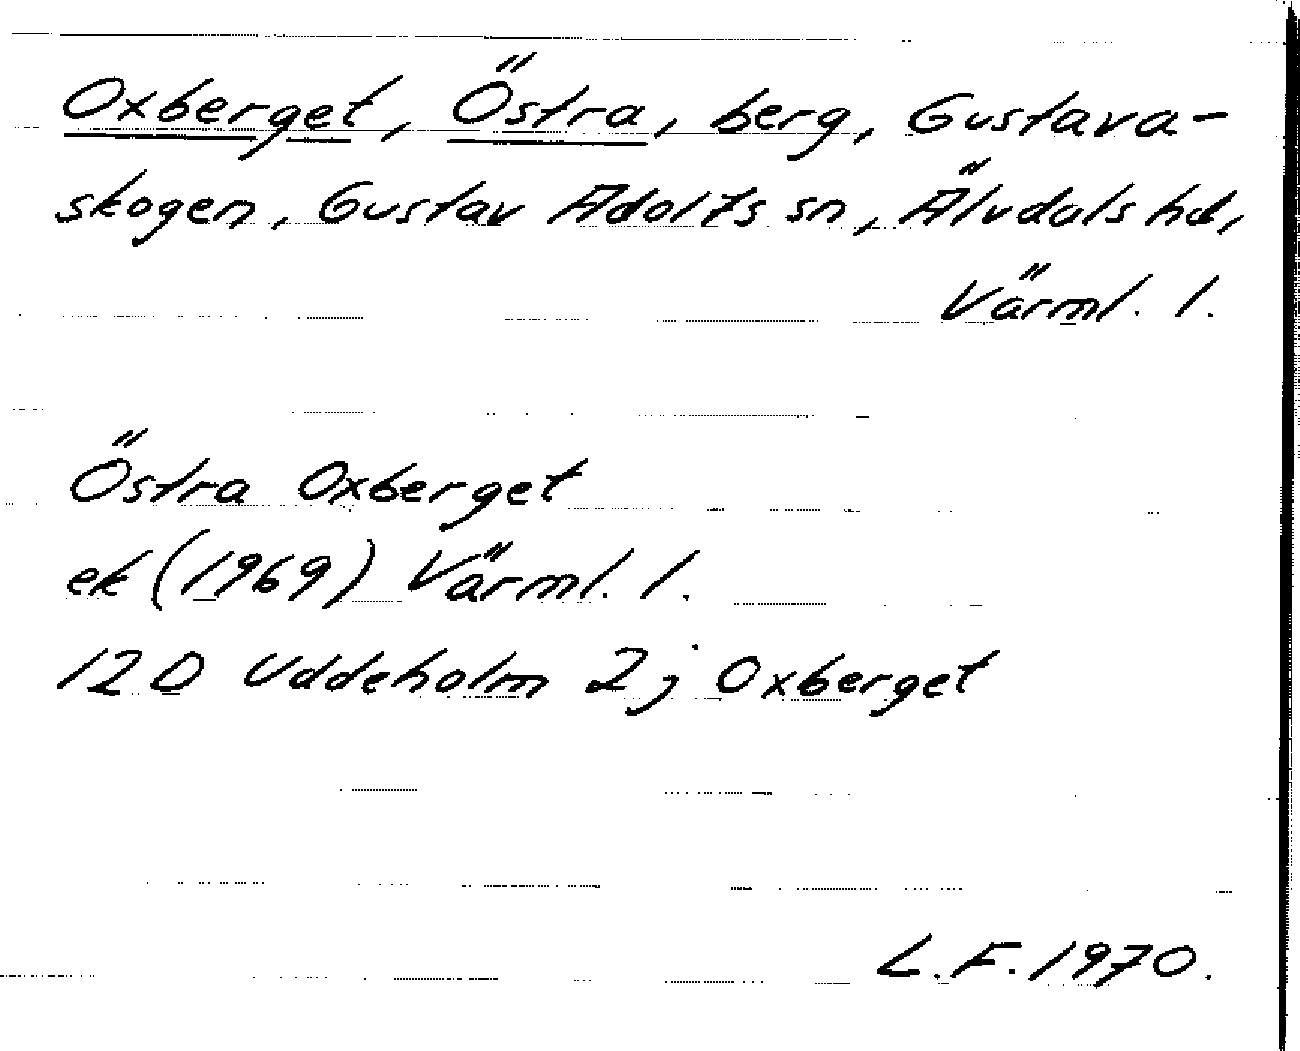 Oxberget, Östra, berg, Gustava-
skogen, Gustav Adolfs sn, Älvdals hd,
Värml. l.
Östra Oxberget
ek (1969) Värml. l.
12 D Uddeholm 2 j Oxberget
L.F. 1970.